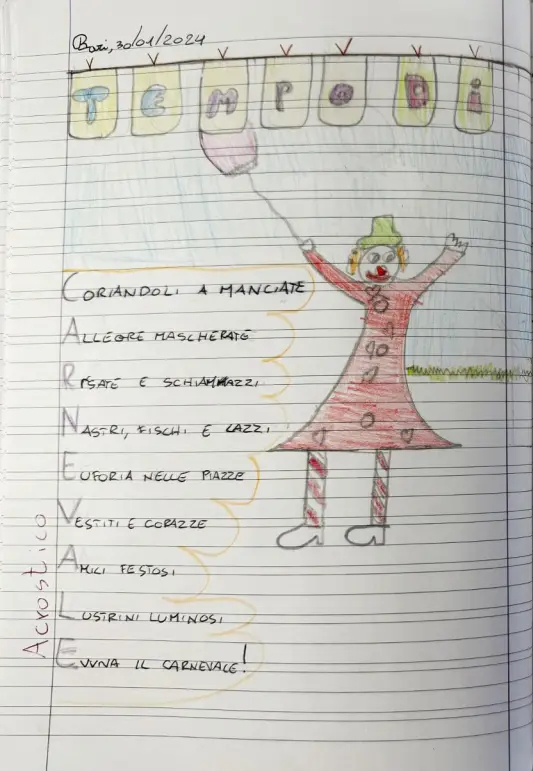 Bari, 30/01/2024
TEMPO Di
CORIANDOLI A MANCIATE
ALLEGRE MASCHERATE
RISATE E SCHIAMAZZI
NASTRI, FISCHI E LAZZI
EUFORIA NELLE PIAZZE
VESTITI E CORAZZE
AMICI FESTOSI
LUSTRINI LUMINOSI
EVVIVA IL CARNEVALE!
Acrostico